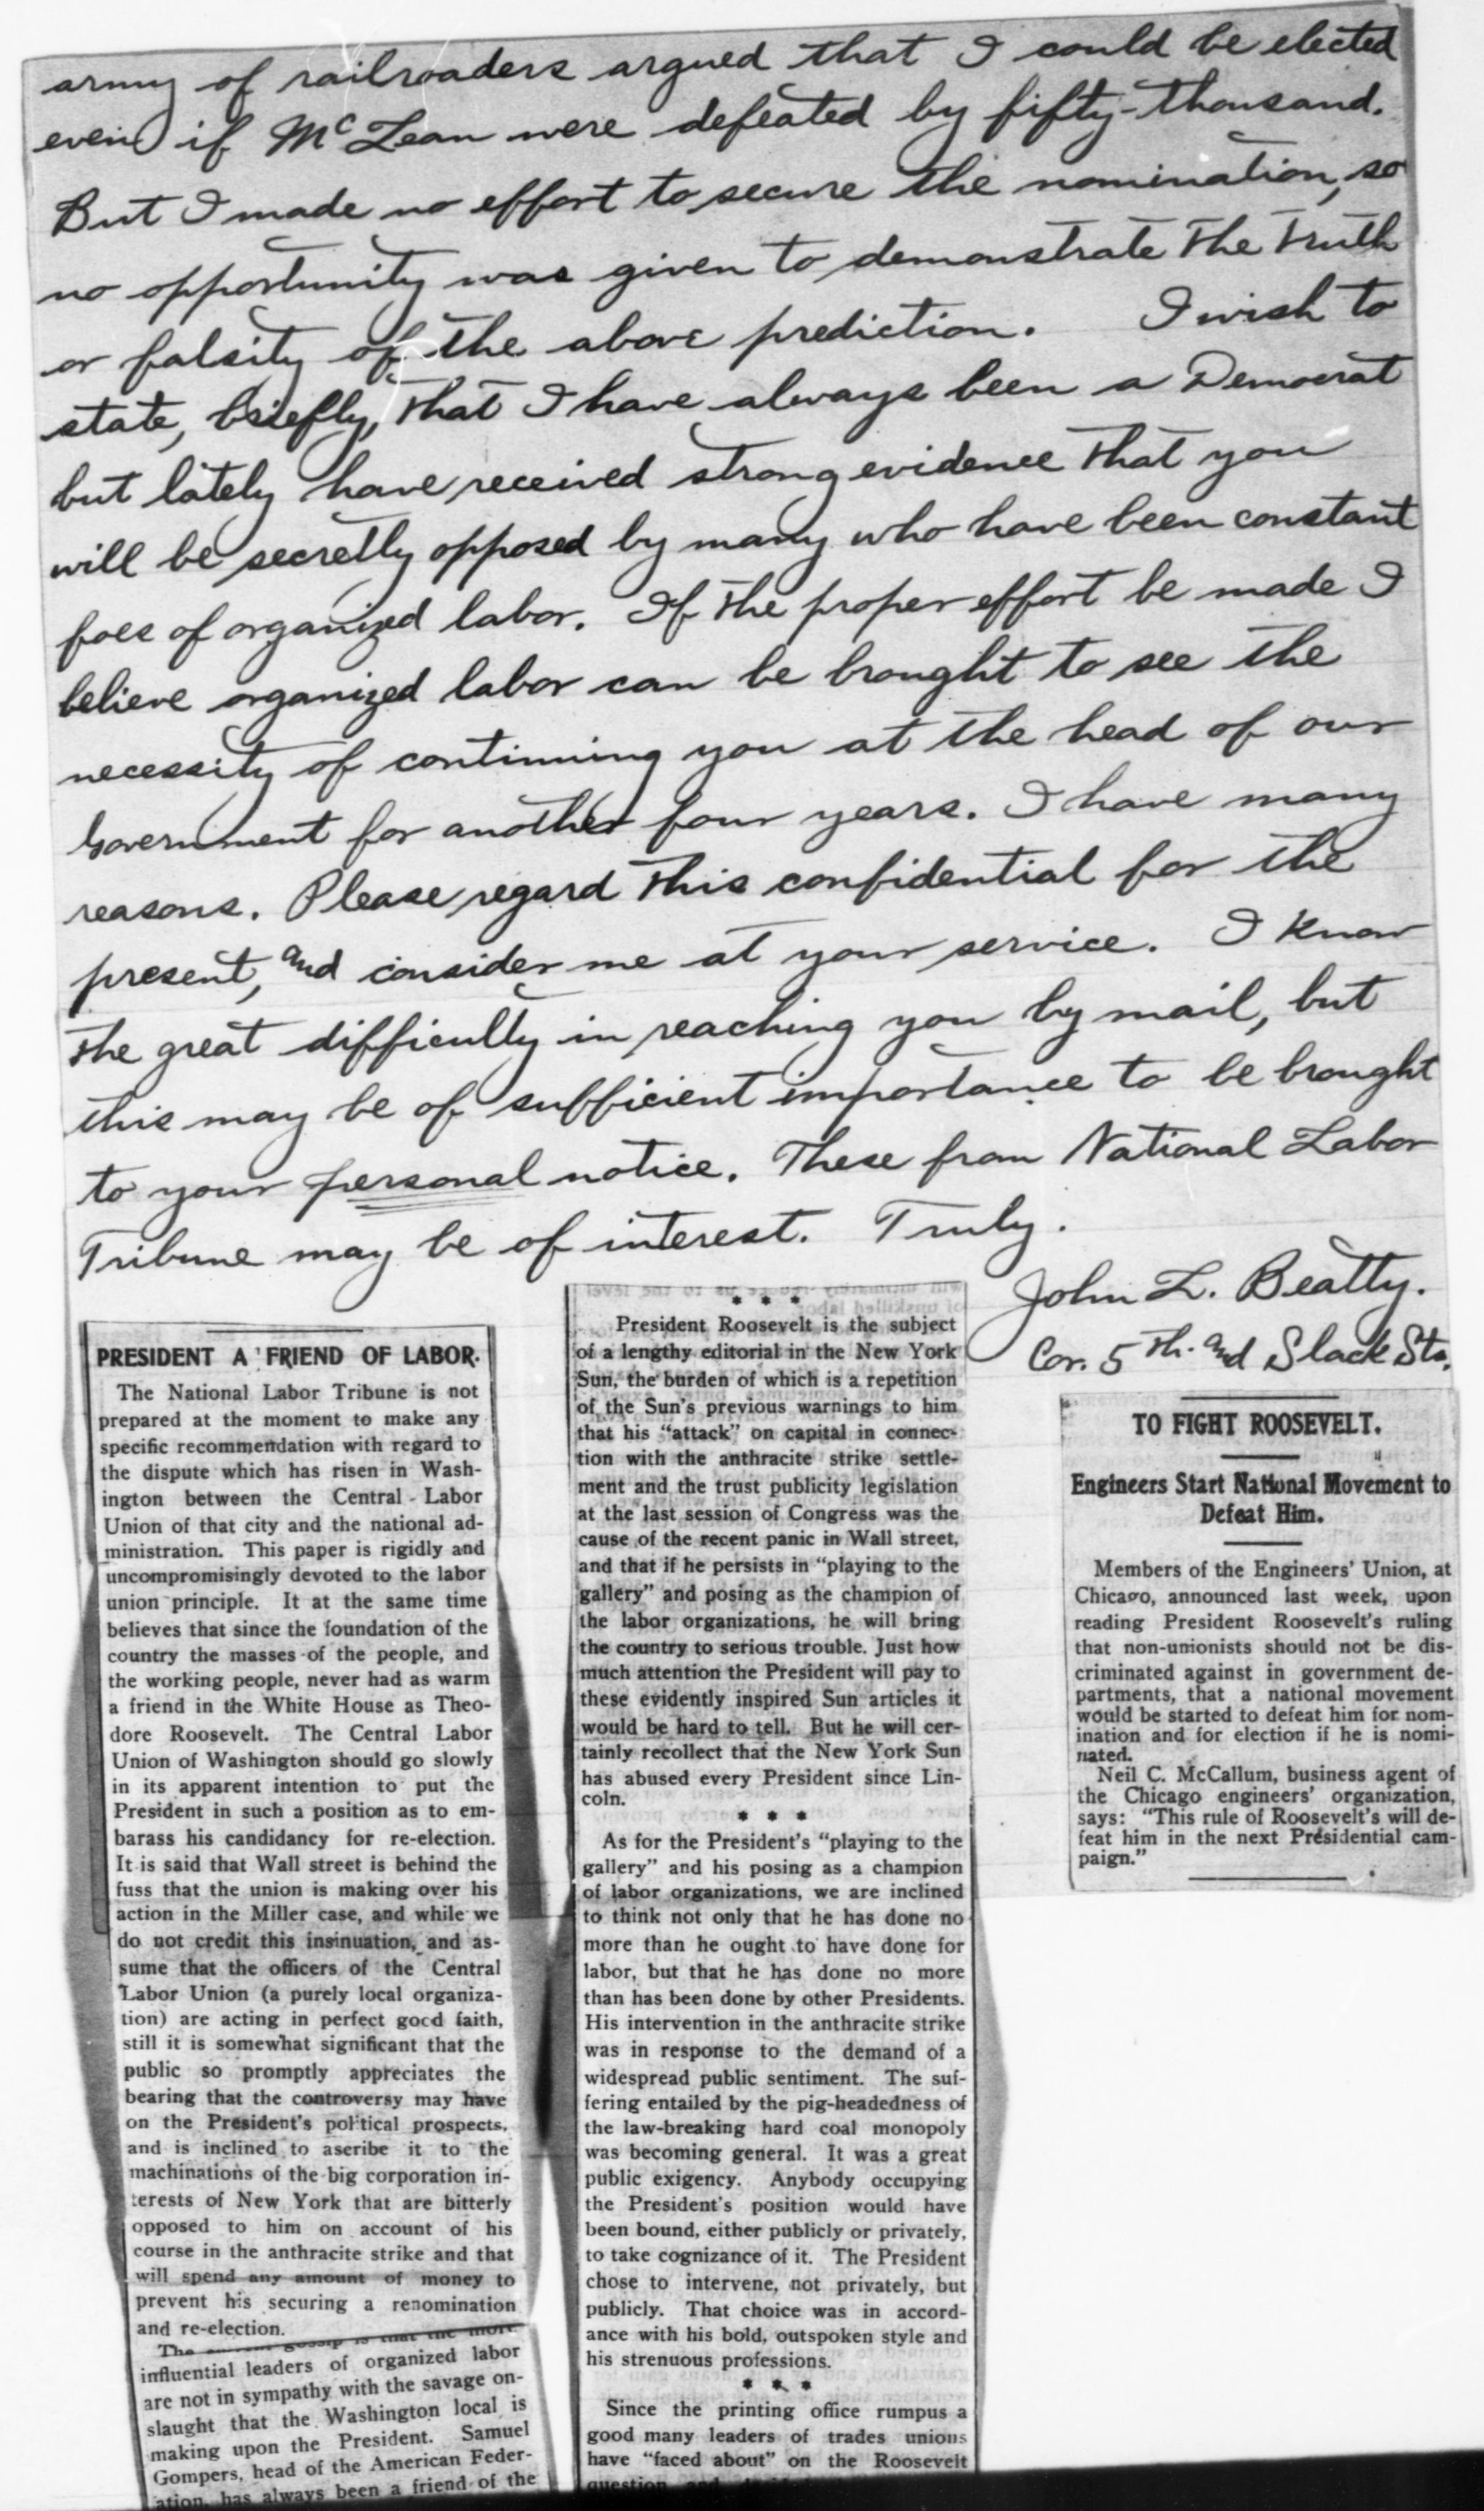 army of railroaders argued that I could be elected
even if McLean were defeated by fifty-thousand.
But I made no effort to secure the nomination, so
no opportunity was given to demonstrate the truth
or falsity of the above prediction. I wish to
state, briefly, that I have always been a Democrat
but lately have received strong evidence that you
will be secretly opposed by many who have been constant
foes of organized labor. If the proper effort be made I
believe organized labor can be brought to see the
necessity of continuing you at the head of our
Government for another four years. I have many
reasons. Please regard this confidential for the
present, and consider me at your service. I know
the great difficulty in reaching you by mail, but
this may be of sufficient importance to be brought
to your personal notice. These from National Labor
Tribune may be of interest. Truly.
John L. Beatty.
Cor. 5th. and Slack Sts.
PRESIDENT A FRIEND OF LABOR.
The National Labor Tribune is not
prepared at the moment to make any
specific recommendation with regard to
the dispute which has risen in Wash-
ington between the Central Labor
Union of that city and the national ad-
ministration. This paper is rigidly and
uncompromisingly devoted to the labor
union principle. It at the same time
believes that since the foundation of the
country the masses of the people, and
the working people, never had as warm
a friend in the White House as Theo-
dore Roosevelt. The Central Labor
Union of Washington should go slowly
in its apparent intention to put the
President in such a position as to em-
barass his candidancy for re-election.
It is said that Wall street is behind the
fuss that the union is making over his
action in the Miller case, and while we
do not credit this insinuation, and as-
sume that the officers of the Central
Labor Union (a purely local organiza-
tion) are acting in perfect good faith,
still it is somewhat significant that the
public so promptly appreciates the
bearing that the controversy may have
on the President's political prospects,
and is inclined to ascribe it to the
machinations of the big corporation in-
terests of New York that are bitterly
opposed to him on account of his
course in the anthracite strike and that
will spend any amount of money to
prevent his securing a renomination
and re-election.
The current gossip is that the more
influential leaders of organized labor
are not in sympathy with the savage on-
slaught that the Washington local is
making upon the President. Samuel
Gompers, head of the American Feder-
ation, has always been a friend of the
* * *
President Roosevelt is the subject
of a lengthy editorial in the New York
Sun, the burden of which is a repetition
of the Sun's previous warnings to him
that his "attack" on capital in connec-
tion with the anthracite strike settle-
ment and the trust publicity legislation
at the last session of Congress was the
cause of the recent panic in Wall street,
and that if he persists in "playing to the
gallery" and posing as the champion of
the labor organizations, he will bring
the country to serious trouble. Just how
much attention the President will pay to
these evidently inspired Sun articles it
would be hard to tell. But he will cer-
tainly recollect that the New York Sun
has abused every President since Lin-
coln.
* * *
As for the President's "playing to the
gallery" and his posing as a champion
of labor organizations, we are inclined
to think not only that he has done no
more than he ought to have done for
labor, but that he has done no more
than has been done by other Presidents.
His intervention in the anthracite strike
was in response to the demand of a
widespread public sentiment. The suf-
fering entailed by the pig-headedness of
the law-breaking hard coal monopoly
was becoming general. It was a great
public exigency. Anybody occupying
the President's position would have
been bound, either publicly or privately,
to take cognizance of it. The President
chose to intervene, not privately, but
publicly. That choice was in accord-
ance with his bold, outspoken style and
his strenuous professions.
* * *
Since the printing office rumpus a
good many leaders of trades unions
have "faced about" on the Roosevelt
question and
TO FIGHT ROOSEVELT.
Engineers Start National Movement to
Defeat Him.
Members of the Engineers' Union, at
Chicago, announced last week, upon
reading President Roosevelt's ruling
that non-unionists should not be dis-
criminated against in government de-
partments, that a national movement
would be started to defeat him for nom-
ination and for election if he is nomi-
nated.
Neil C. McCallum, business agent of
the Chicago engineers' organization,
says: "This rule of Roosevelt's will de-
feat him in the next Presidential cam-
paign."